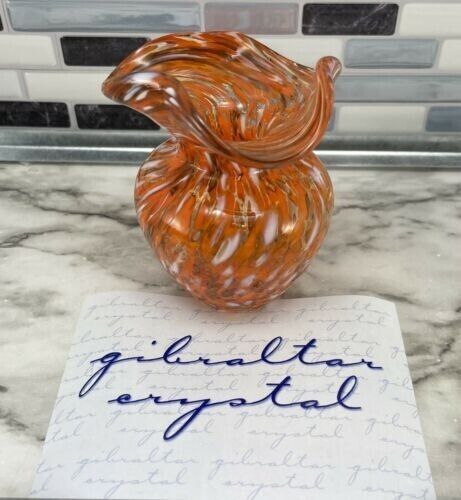 gibraltar
crystal